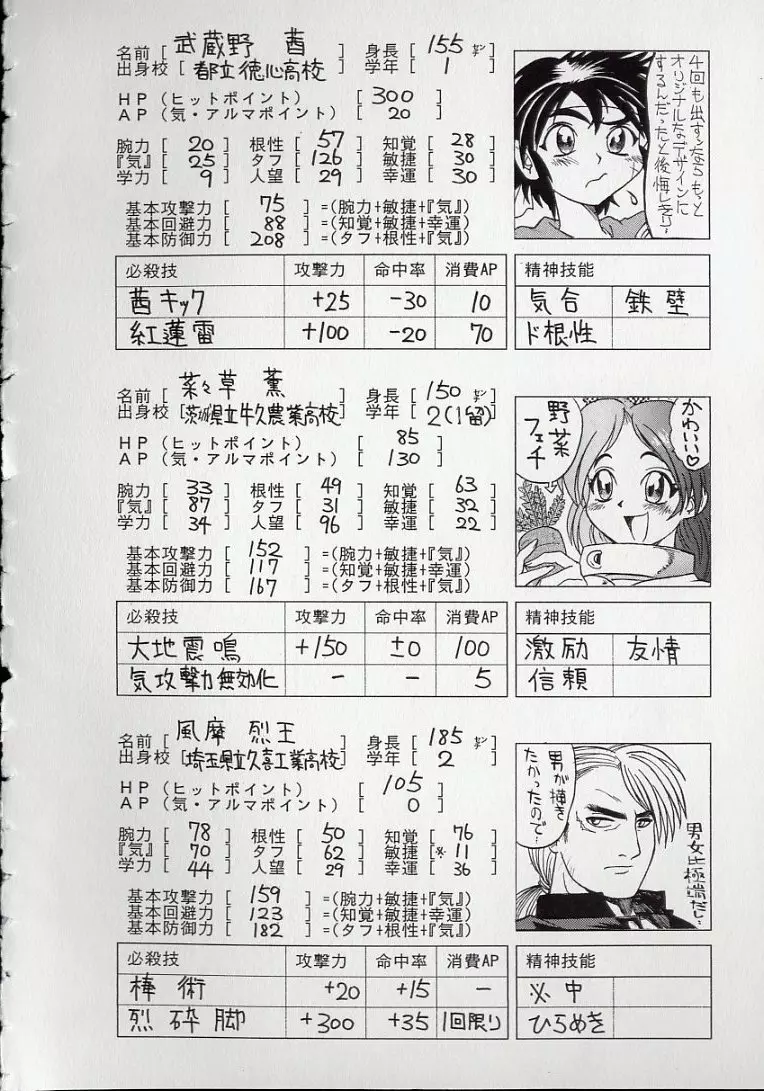 名前 [ 武蔵野 茜 ] 身長 [ 155㌢ ]
出身校 [ 都立徳心高校 ] 学年 [ 1 ]
HP (ヒットポイント) [ 300 ]
AP (気・アルマポイント) [ 20 ]
腕力 [ 20 ] 根性 [ 57 ] 知覚 [ 28 ]
『気』[ 25 ] タフ [ 126 ] 敏捷 [ 30 ]
学力 [ 9 ] 人望 [ 29 ] 幸運 [ 30 ]
基本攻撃力 [ 75 ] =(腕力+敏捷+『気』)
基本回避力 [ 88 ] =(知覚+敏捷+幸運)
基本防御力 [ 208 ] =(タフ+根性+『気』)
4回も出すんならもっと
オリジナルなデザインに
するんだったと後悔しきり…
必殺技 攻撃力 命中率 消費AP 精神技能
茜キック +25 -30 10 気合 鉄壁
紅蓮雷 +100 -20 70 ド根性
名前 [ 菜々草 薫 ] 身長 [ 150㌢ ]
出身校 [茨城県立牛久農業高校] 学年 [ 2(1留) ]
HP (ヒットポイント) [ 85 ]
AP (気・アルマポイント) [ 130 ]
腕力 [ 33 ] 根性 [ 49 ] 知覚 [ 63 ]
『気』[ 87 ] タフ [ 31 ] 敏捷 [ 32 ]
学力 [ 34 ] 人望 [ 96 ] 幸運 [ 22 ]
基本攻撃力 [ 152 ] =(腕力+敏捷+『気』)
基本回避力 [ 117 ] =(知覚+敏捷+幸運)
基本防御力 [ 167 ] =(タフ+根性+『気』)
かわいい♡
野菜
フェチ
必殺技 攻撃力 命中率 消費AP 精神技能
大地震鳴 +150 ±0 100 激励 友情
気攻撃力無効化 - - 5 信頼
名前 [ 風摩 烈王 ] 身長 [ 185㌢ ]
出身校 [埼玉県立久喜工業高校] 学年 [ 2 ]
HP (ヒットポイント) [ 105 ]
AP (気・アルマポイント) [ 0 ]
腕力 [ 78 ] 根性 [ 50 ] 知覚 [ 76 ]
『気』[ 70 ] タフ [ 62 ] 敏捷 [※ 11 ]
学力 [ 44 ] 人望 [ 29 ] 幸運 [ 36 ]
基本攻撃力 [ 159 ] =(腕力+敏捷+『気』)
基本回避力 [ 123 ] =(知覚+敏捷+幸運)
基本防御力 [ 182 ] =(タフ+根性+『気』)
男が描き
たかったので…
男女比極端だし…
必殺技 攻撃力 命中率 消費AP 精神技能
棒術 +20 +15 - 必中
烈砕脚 +300 +35 1回限り ひらめき